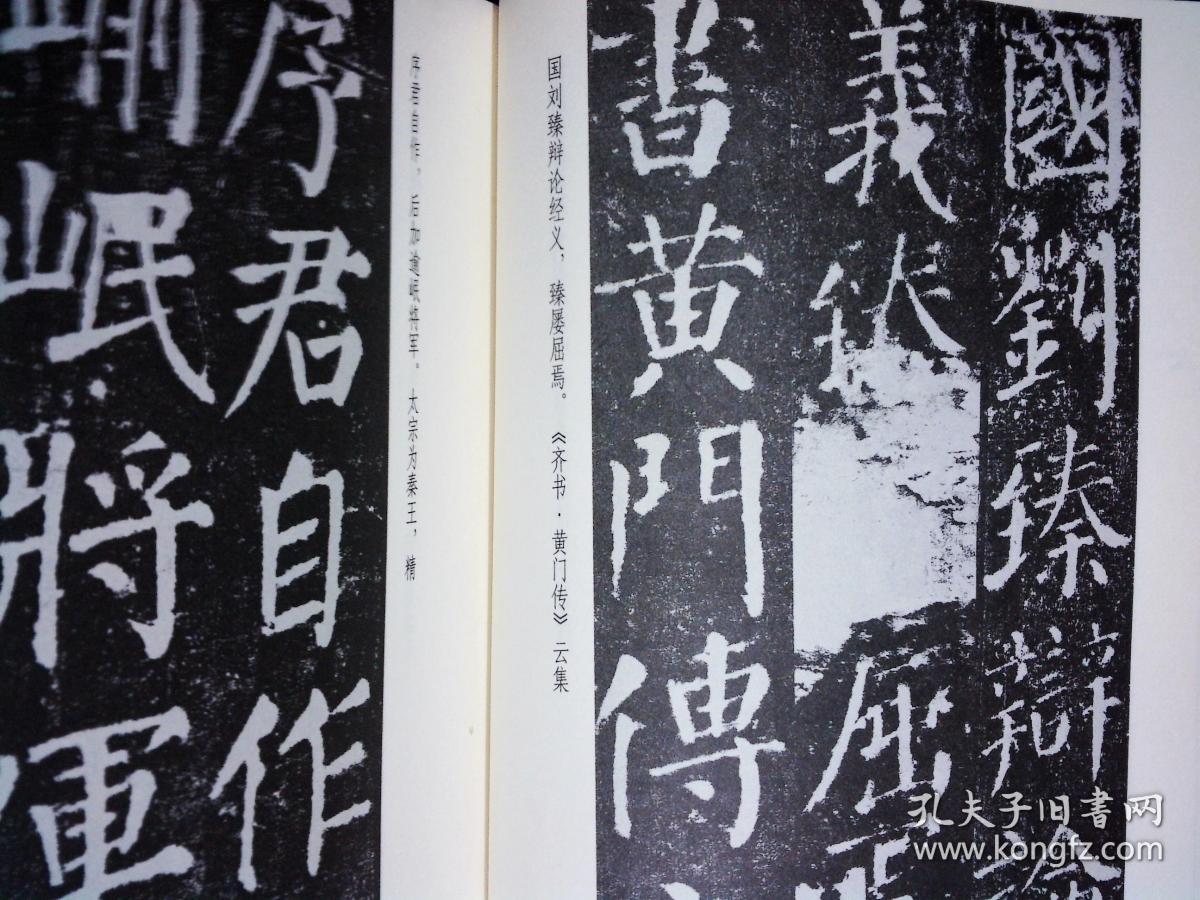 國劉臻辯論
義
屈
書黃門傳
国刘臻辩论经义，臻屡屈焉。《齐书·黄门传》云集
序君自作，后加逾岷将军。太宗为秦王，精
序君自作
岷將軍
孔夫子旧書网
www.kongfz.com